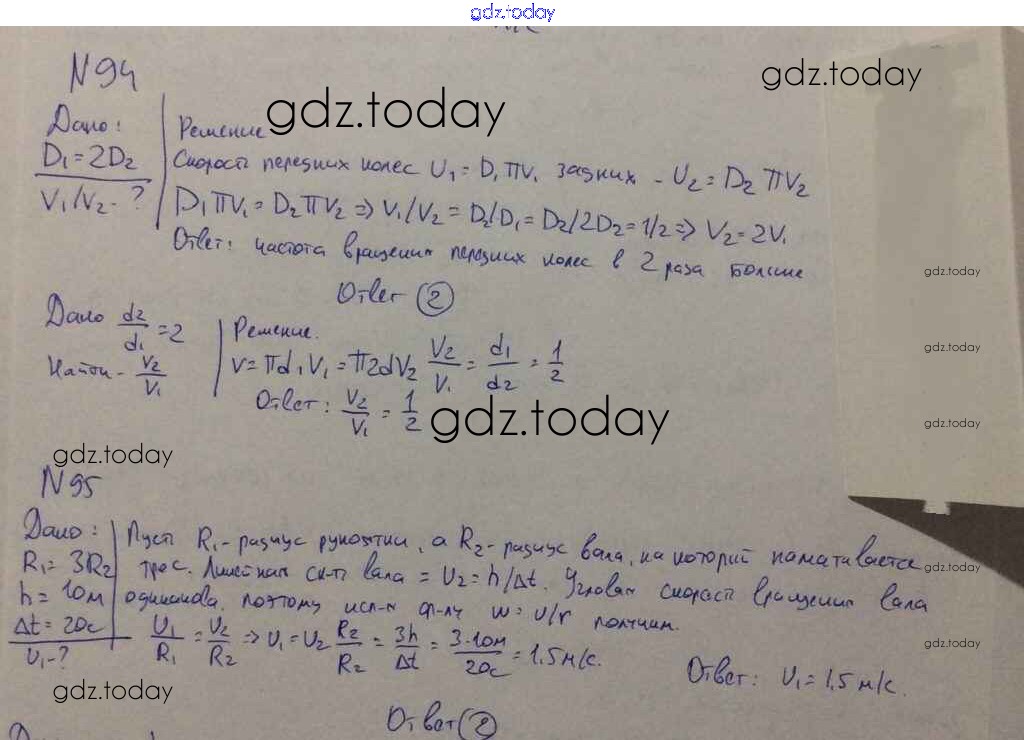 gdz.today
N94
gdz.today
gdz.today
Дано:
D₁=2D₂
V₁/V₂-?
Решение
Скорость передних колес U₁=D₁πV₁ задних - U₂=D₂πV₂
D₁πV₁=D₂πV₂ => V₁/V₂=D₂/D₁=D₂/2D₂=1/2=> V₂=2V₁
Ответ: частота вращения передних колес в 2 раза больше
gdz.today
Ответ (2)
Дано d₂/d₁=2
Найти - V₂/V₁
Решение.
v=πd₁V₁=π2dV₂ V₂/V₁=d₁/d₂=1/2
Ответ: V₂/V₁=1/2
gdz.today
gdz.today
gdz.today
gdz.today
N95
Дано:
R₁=3R₂
h=10м
Δt=20с
U₁-?
Пусть R₁-радиус рукоятки, а R₂-радиус вала, на который наматывается
трос. Линейная ск-ть вала = U₂=h/Δt. Угловая скорость вращения вала
одинакова, поэтому исп-я ф-лу w=U/r получим.
U₁/R₁=U₂/R₂ => U₁=U₂ R₂/R₂=3h/Δt=3·10м/20с=1,5м/с.
Ответ: U₁=1,5м/с.
gdz.today
gdz.today
gdz.today
Ответ (2)
gdz.today